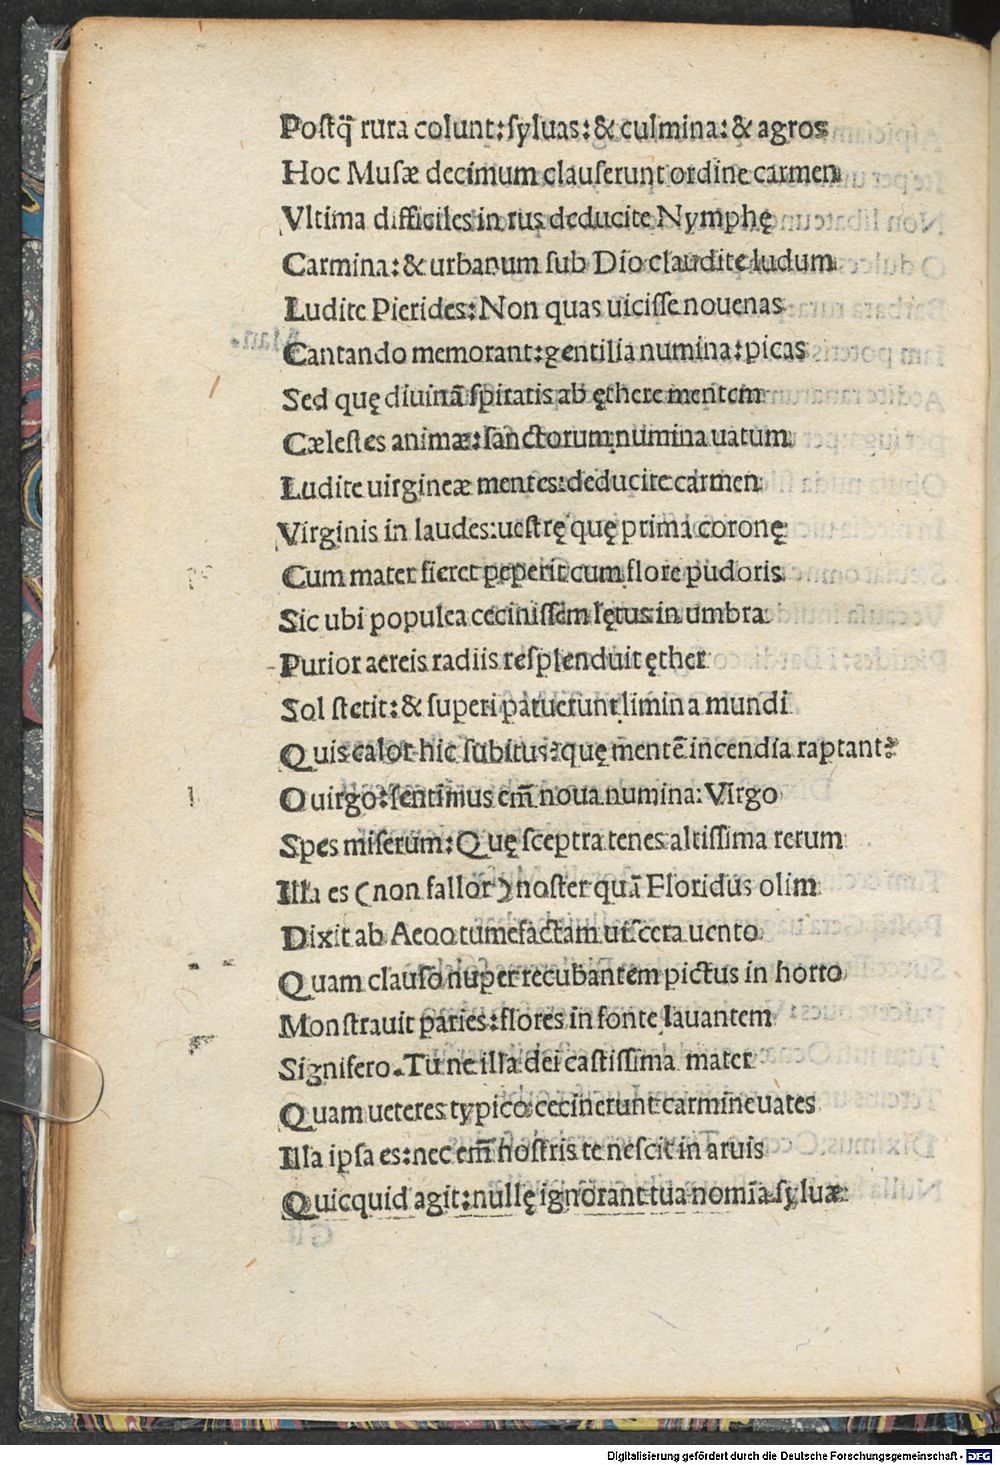 Poſtq̃ rura colunt: ſyluas: & culmina: & agros
Hoc Muſæ decimum clauſerunt ordine carmen
Vltima difficiles in rus deducite Nymphę
Carmina: & urbanum ſub Dio claudite ludum
Ludite Pierides: Non quas uiciſſe nouenas
Cantando memorant: gentilia numina: picas
Sed quę diuinā ſpiratis ab ęthere mentem
Cæleſtes animæ: ſanctorum numina uatum
Ludite uirgineæ mentes: deducite carmen
Virginis in laudes: ueſtrę quę prima coronę
Cum mater fieret peperit cum flore pudoris
Sic ubi populea ceciniſſem lętus in umbra
Purior aereis radiis reſplenduit ęther
Sol ſtetit: & ſuperi patuerunt limina mundi
Quis calor hic ſubitus: quę mentē incendia raptant?
O uirgo: ſentimus em̄ noua numina: Virgo
Spes miſerum: Quę ſceptra tenes altiſſima rerum
Illa es (non fallor) noſter quā Floridus olim
Dixit ab Aeoo tumefactam uiſcera uento
Quam clauſo nuper recubantem pictus in horto
Monſtrauit paries: flores in fonte lauantem
Signifero. Tu ne illa dei caſtiſſima mater
Quam ueteres typico cecinerunt carmine uates
Illa ipſa es: nec em̄ noſtris te neſcit in aruis
Quicquid agit: nullę ignorant tua nomīa ſyluæ
Digitalisierung gefördert durch die Deutsche Forschungsgemeinschaft - DFG